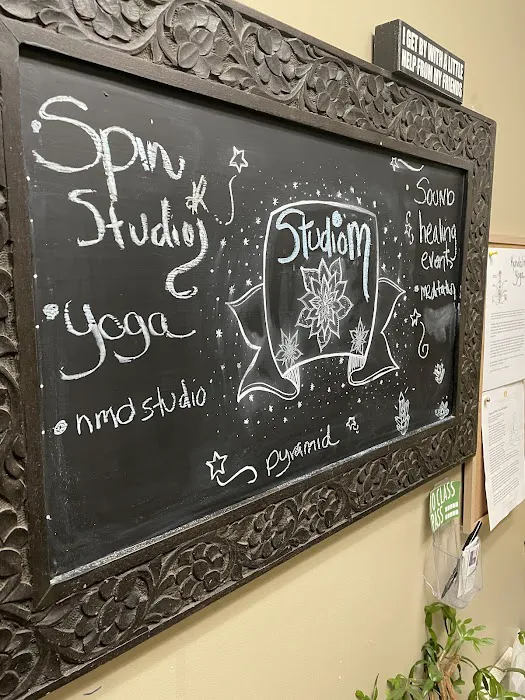 I GET BY WITH A LITTLE
HELP FROM MY FRIENDS
Spin
Studio
• Yoga
• nmd studio
StudioM
pyramid
• Sound
healing
events
• meditation
10 CLASS
PASS